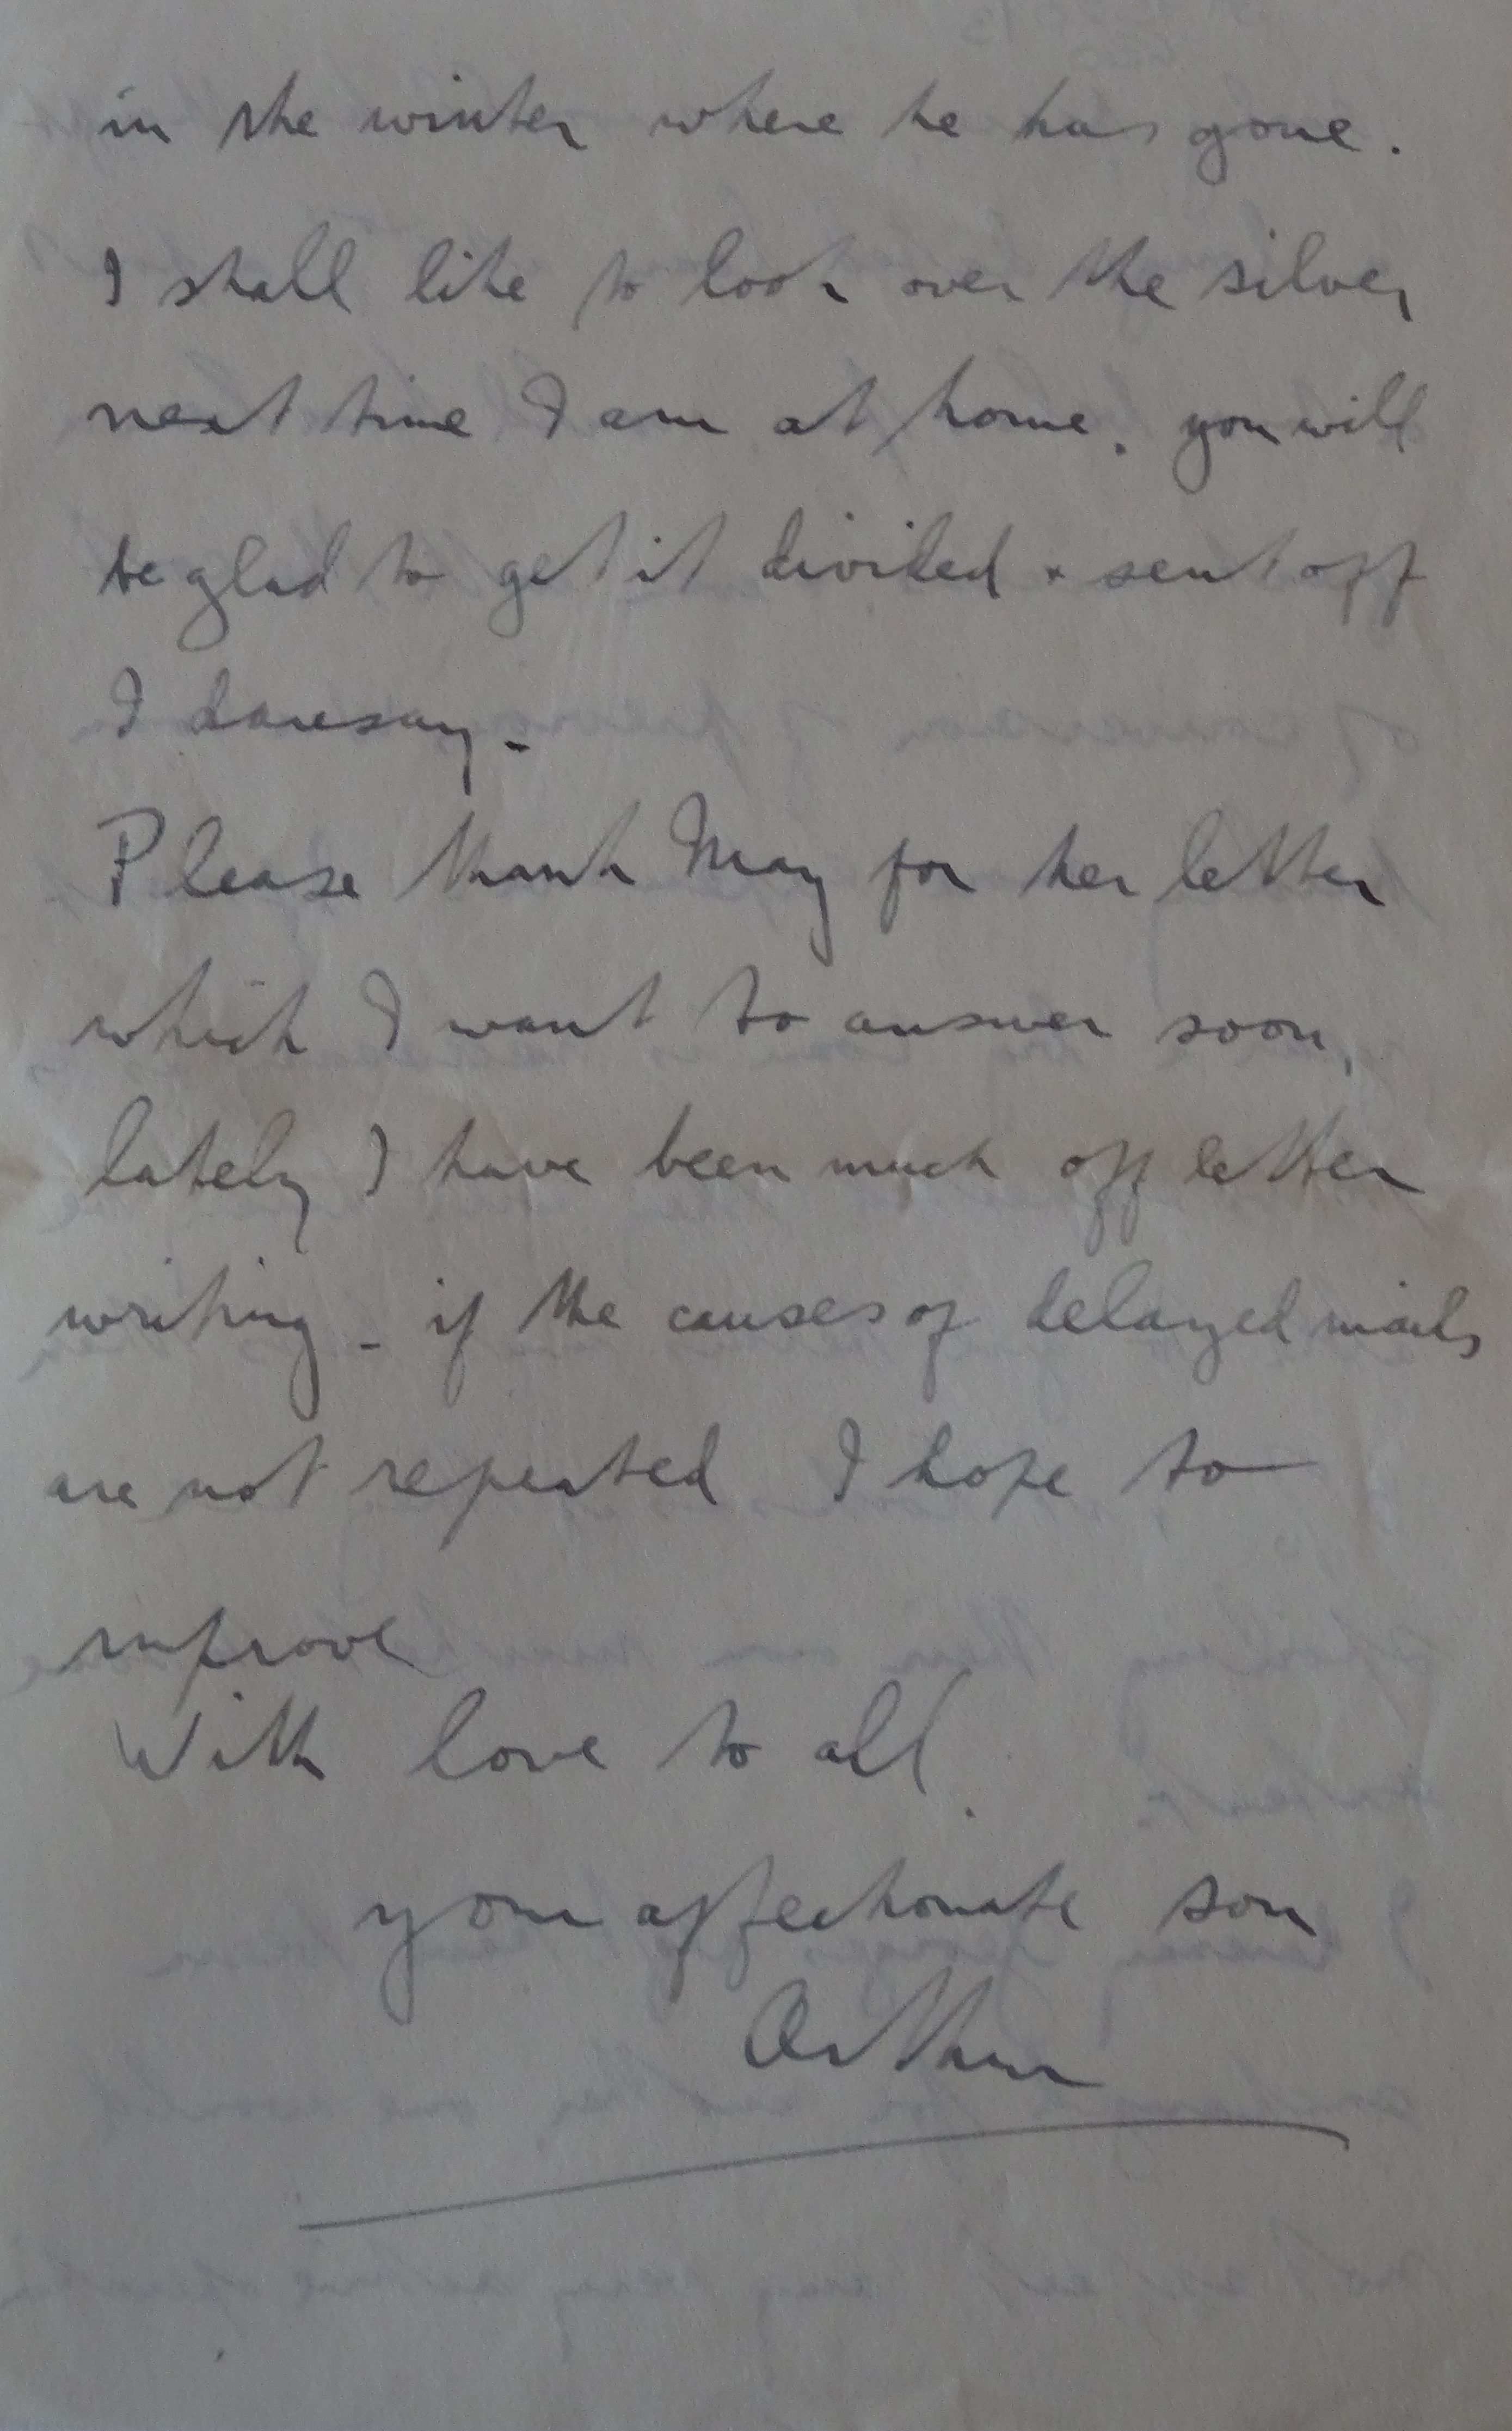 in the winter where he has gone.
I shall like to look over the silver
next time I am at home. you will
be glad to get it divided & sent off
I daresay -
Please thank May for her letter
which I want to answer soon,
lately I have been much off letter
writing - if the causes of delayed mails
are not repeated I hope to
improve
With love to all.
your affectionate son
Arthur